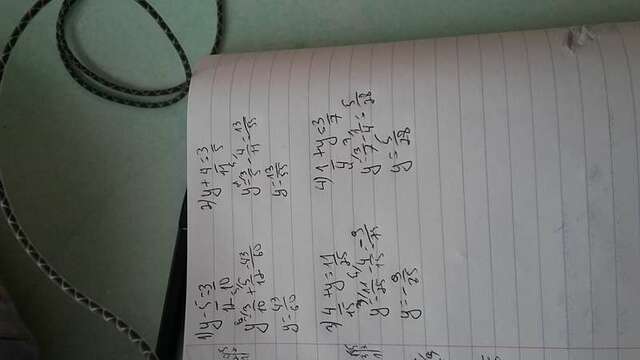 1) y - 5/12 = 3/10
y = 3/10 + 5/12 = 43/60
y = 43/60
2) y + 4/11 = 3/5
y = 3/5 - 4/11 = 13/55
y = 13/55
3) 4/15 + y = 11/25
y = 11/25 - 4/15 = -9/75
y = -9/25
4) 1/4 + y = 3/7
y = 3/7 - 1/4 = 5/28
y = 5/28